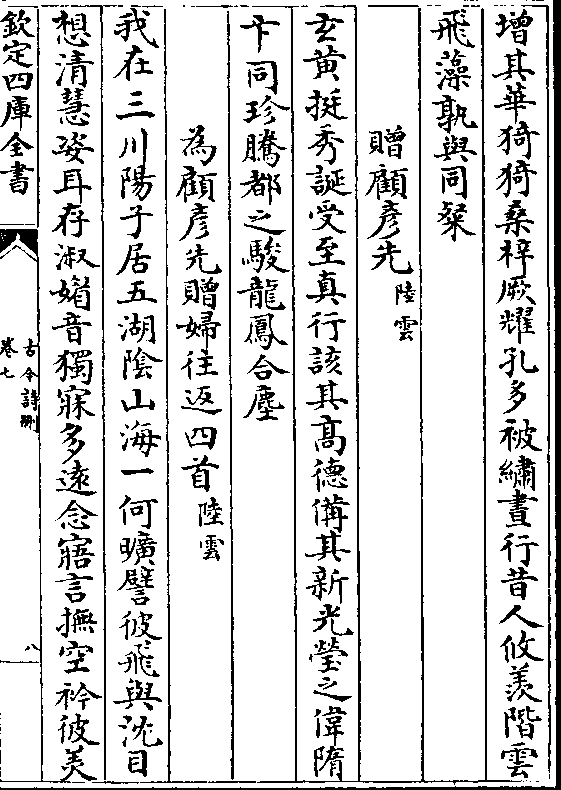 增其華猗猗桑梓厥耀孔多被繡晝行昔人攸羨階雲
飛藻孰與同粲
贈顧彥先陸雲
玄黃挺秀誕受至真行該其高德備其新光瑩之偉隋
卞同珍騰都之駿龍鳳合塵
為顧彥先贈婦往返四首陸雲
我在三川陽子居五湖陰山海一何曠譬彼飛與沈目
想清慧姿耳存淑媚音獨寐多遠念寤言撫空衿彼美
欽定四庫全書
古今詩刪
卷七
八